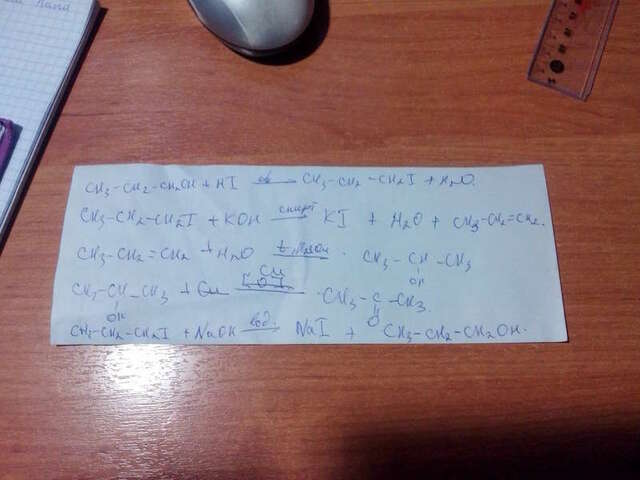 CH₃-CH₂-CH₂OH + HI → CH₃-CH₂-CH₂I + H₂O.
CH₃-CH₂-CH₂I + KOH спирт→ KI + H₂O + CH₃-CH₂=CH₂.
CH₃-CH₂=CH₂ + H₂O → CH₃-CH-CH₃
OH
CH₃-CH-CH₃ + Cu Cu [O] → CH₃-C-CH₃.
OH O
CH₃-CH₂-CH₂I + NaOH вод.→ NaI + CH₃-CH₂-CH₂OH.